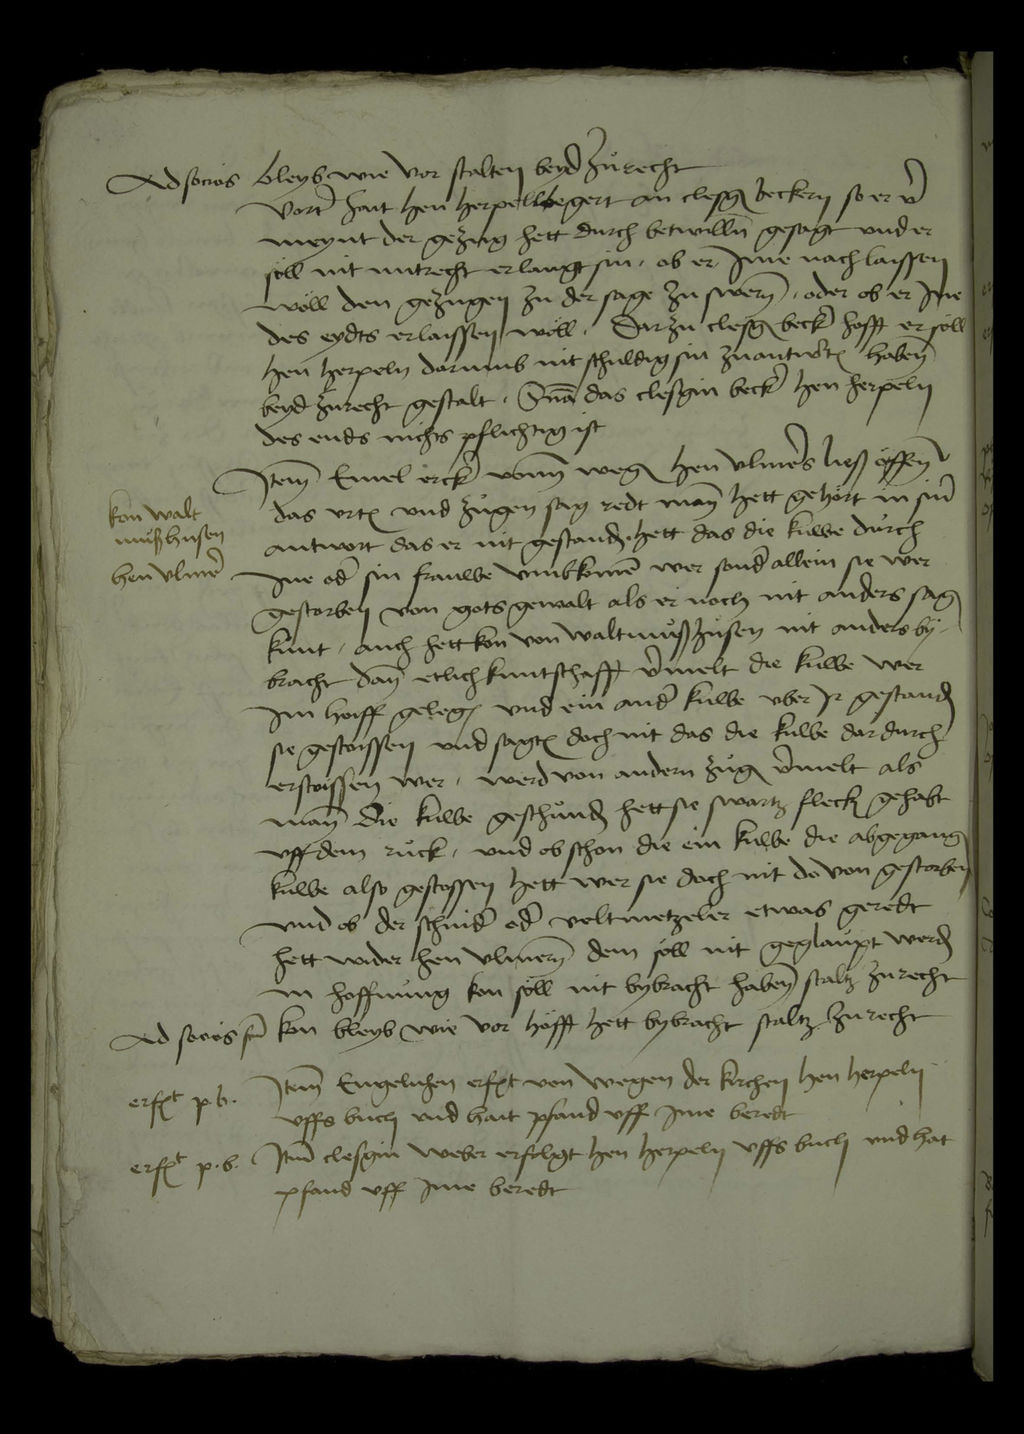 Ad socios bleyb wie vor stalten beyd zurecht
Vort hait Hen Herpell begert an Clesgin Beckern so er v̄
meynt der gezug hett durch betwilln̄ gesagt und er
soll mit untrecht erlangt sin, ob er Ime nach laissen
wöll den gezugen zu der sage zu swern̄, oder ob er Ime
des eydts erlaissen wöll. Darzu Clesgin Becker hofft er soll
Hen Herpeln darumb nit schuldig sin zu antwörtn haben̄
beyd zurecht gestalt. das Clesgin Becker Hen Herpeln
des ends nichts pflichtig ist
Item̄ Emel erck vonn wegen Hen Ulmers ließ offen̄
das urtel und zugen sag redt man̄ hett gehört in sin̄
antwort das er nit gestanden hett das die kuwe durch
Kon Walt
mußhusen
Hen Ulmer
Ine oder sin frauwe umbkomē wer sonder allein sie wer
gestorben von gots gewalt als er noch nit anders sagen
kunt, auch hett Kon von Waltmußhusen nit anders by-
bracht dan̄ etlich kuntschafft v̄melt die kuwe wer
Im hoiff gelegen und ein ander kuwe uber Ir gestanden
sie gestoissen und sagtn doch nit das die kuwe dardurch
erstoissen wer, werd von andern zugen v̄melt als
man̄ die kuwe geschunden hett sie swartz fleck gehabt
uff dem ruck, und ob schon die ein kuwe die abgegangen
kuwe also gestossen hett wer sie doch nit do von gestorben
und ob der schinder oder veltmetzeler etwas geredt
hett wider Hen Ulmern̄ dem soll nit geglaupt werden
in hoffnung Kon söll nit bybracht haben̄ staltz zurecht
Ad socios Kon bleyb wie vor höfft hett bybracht staltz zurecht
erfxt p. b. Item̄ Engelnhen erfxt von wegen der kirchen Hen Herpeln
uffs buch und hait pfand uff Ime beredt
erfxt p. b. Item̄ Clesgin Weber erfolgt Hen Herpeln uffs buch und hat
pfand uff Ime beredt